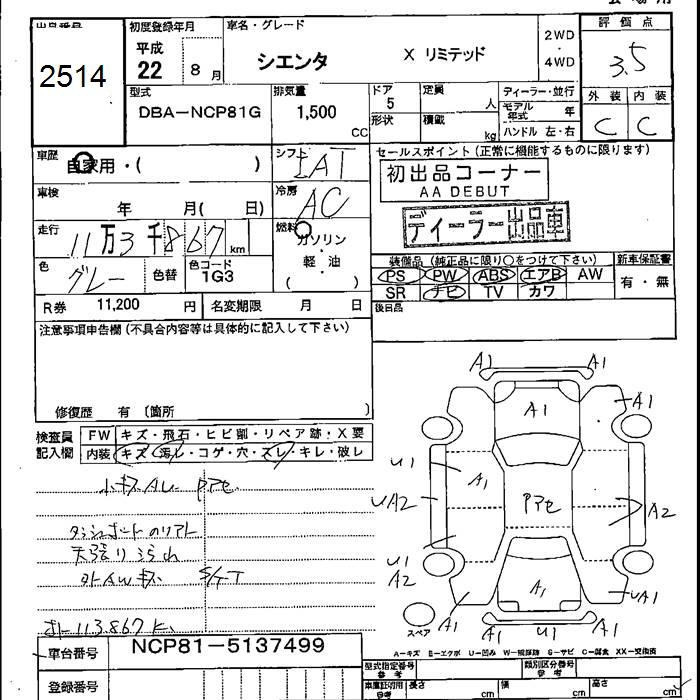 出品番号
2514
初度登録年月
平成
22 8月
車名・グレード
シエンタ X リミテッド
2WD
・
4WD
評価点
3.5
外装 内装
C C
型式
DBA-NCP81G
排気量
1,500 CC
ドア
5
形状
定員 人
積載 kg
ディーラー・並行
モデル年式 年
ハンドル 左・右
車歴
自家用・( )
シフト
IAT
車検
年 月( 日)
冷房
AC
走行
11万3千867 km
燃料
ガソリン
・
軽・油
( )
色
グレー
色替
色コード
1G3
R券 11,200 円
名変期限 月 日
セールスポイント(正常に機能するものに限ります)
初出品コーナー
AA DEBUT
ディーラー出品車
装備品(純正品に限り○をつけて下さい)
PS PW ABS エアB AW
SR ナビ TV カワ
新車保証書
有・無
後日品
注意事項申告欄(不具合内容等は具体的に記入して下さい)
修復歴 有 〔箇所 〕
検査員
記入欄
FW キズ・飛石・ヒビ割・リペア跡・X要
内装 キズ・汚レ・コゲ・穴・スレ・キレ・破レ
小キズAU Pアセ
ダッシュボードのリアト
天張りうられ
外AWキズ S/TT
オドー113.867K
車台番号 NCP81-5137499
登録番号
A1 A1
A1
A1
U1
A1
UA2
Pアセ
A2
U1
A2
A1
A1
UA1
A1 U1 A1
スペア
A-キズ E-エクボ U-凹み W-補修跡 S-サビ C-腐食 XX-交換済
型式指定番号
参考
類別区分番号
参考
車庫証明用
参考
長さ cm
幅 cm
高さ cm